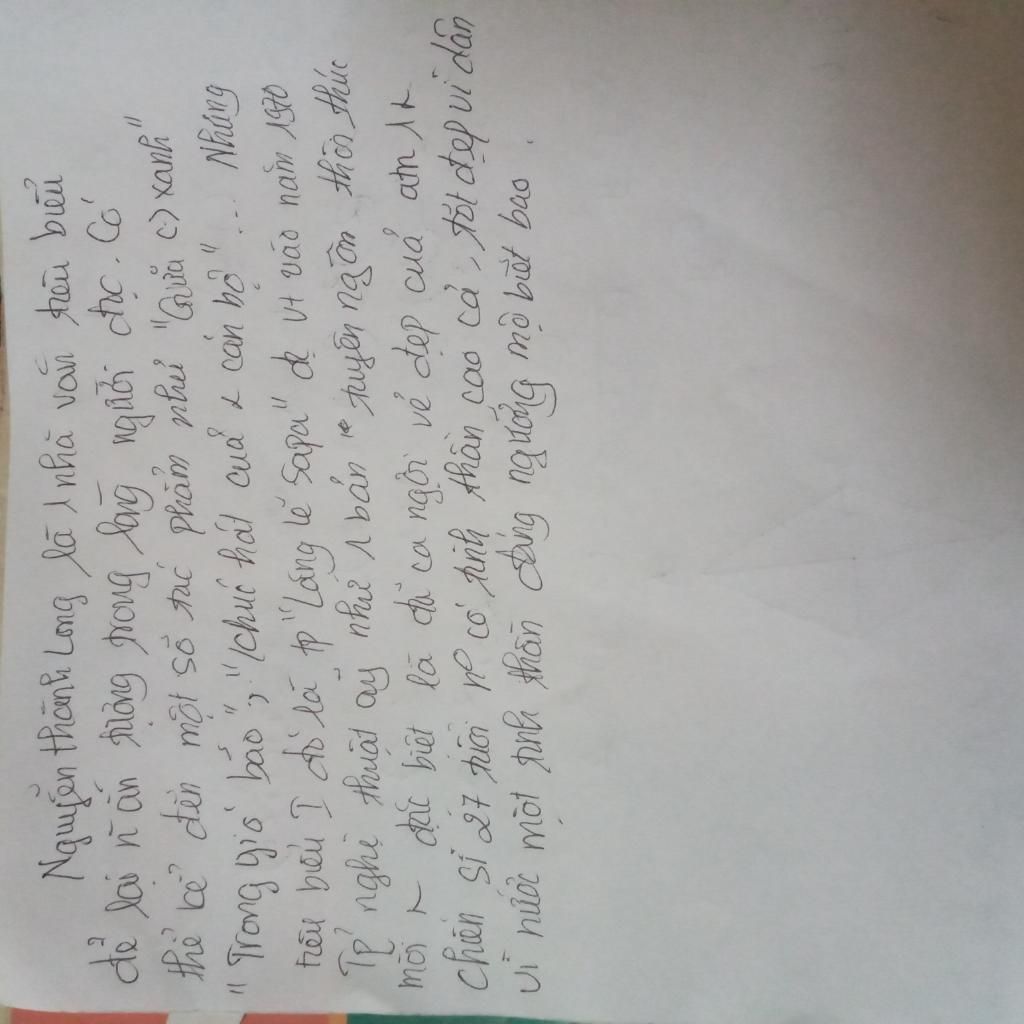 Nguyễn Thành Long là 1 nhà văn tiêu biểu
để lại n ấn tượng trong lòng người đọc. Có
thể kể đến một số tác phẩm như "Giữa (-) xanh"
"Trong gió bão", "chúc hát của cán bộ"... Nhưng
tiêu biểu I đó là tp "Lặng lẽ Sapa" đc vt vào năm 1970
Tp nghệ thuật ấy như 1 bản tuyên ngôn thôi thúc
mỗi đặc biệt là đã ca ngợi vẻ đẹp của atn 1
chiến sĩ 27 tuổi có tinh thần cao cả, tốt đẹp vì dân
vì nước một tinh thần đáng ngưỡng mộ biết bao.